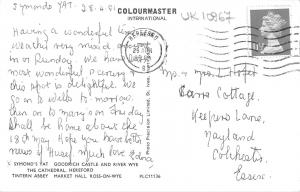 Symonds YAT 28.4.81
COLOURMASTER
INTERNATIONAL
UK 10867
Having a wonderful time
weather very mixed
on Sunday. We have
most wonderful scenery
this spot is delightful. We
go on to Wells tomorrow
then on to
shall be home about the
18th May. Hope you have
news of Hazel. Much love Edna
HEREFORD
Mr & Mrs L Hofer
Barns Cottage.
Keepers Lane,
Nayland
Colchester
Essex.
PLC11136
SYMOND'S YAT GOODRICH CASTLE AND RIVER WYE
THE CATHEDRAL, HEREFORD
TINTERN ABBEY MARKET HALL, ROSS-ON-WYE